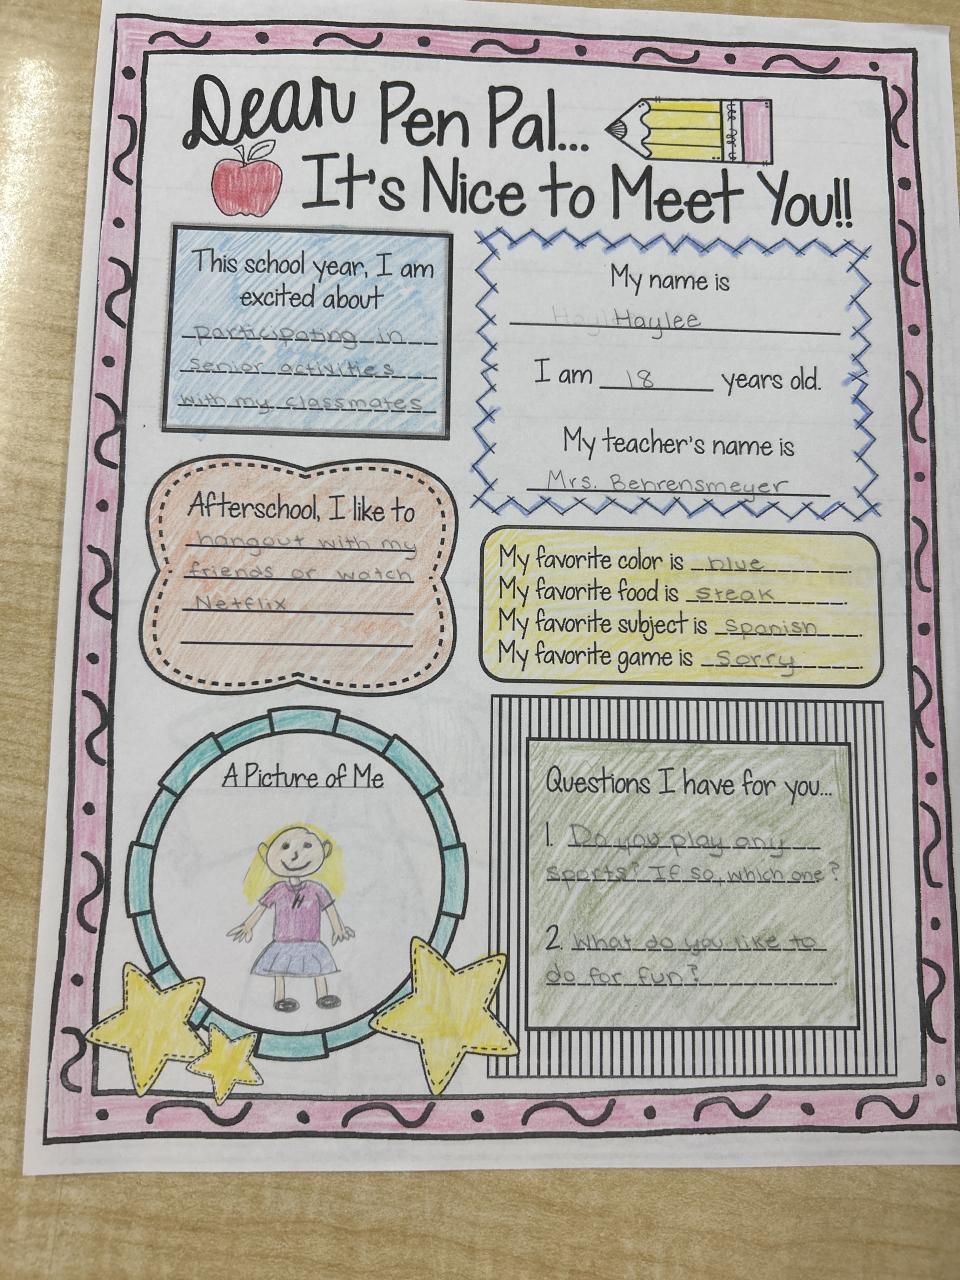 Dear Pen Pal...
It's Nice to Meet You!!
This school year, I am
excited about
participating in
senior activities
with my classmates
My name is
Haylee
I am 18 years old.
My teacher's name is
Mrs. Behrensmeyer
Afterschool, I like to
hangout with my
friends or watch
Netflix
My favorite color is blue.
My favorite food is steak.
My favorite subject is Spanish.
My favorite game is Sorry.
A Picture of Me
H
Questions I have for you...
1. Do you play any
sports? If so, which one?
2. What do you like to
do for fun?